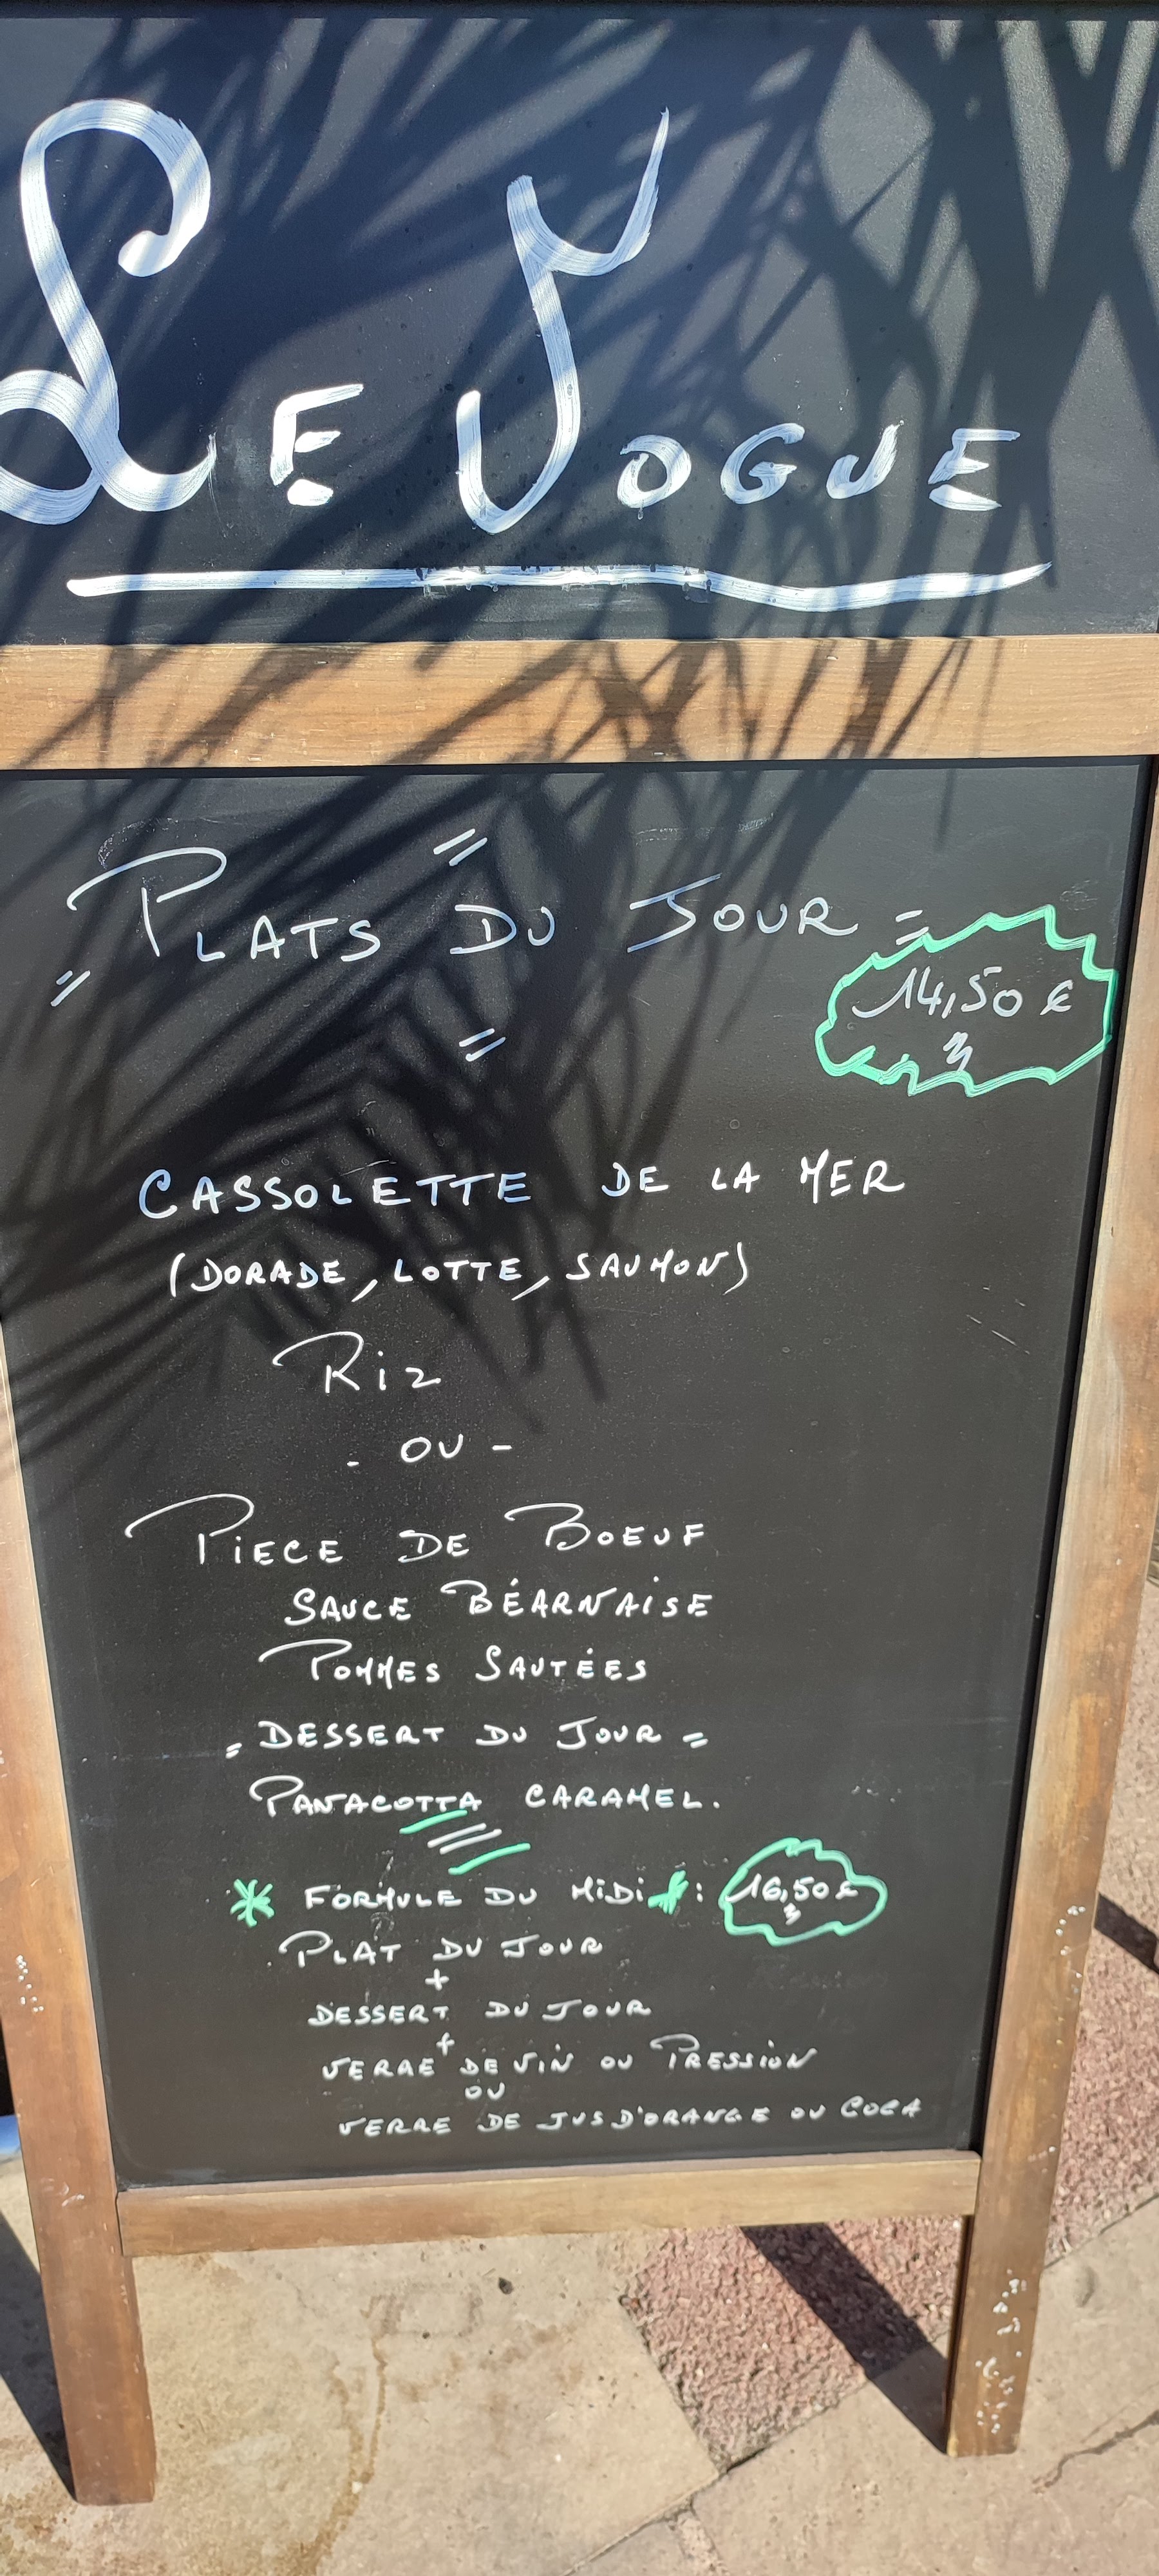 LE VOGUE
PLATS DU JOUR
14,50 €
CASSOLETTE DE LA MER
(DORADE, LOTTE, SAUMON)
RIZ
- OU -
PIECE DE BOEUF
SAUCE BÉARNAISE
POMMES SAUTÉES
= DESSERT DU JOUR =
PANACOTTA CARAMEL.
* FORMULE DU MIDI * : 16,50 €
PLAT DU JOUR
+
DESSERT DU JOUR
+
VERRE DE VIN OU PRESSION
OU
VERRE DE JUS D'ORANGE OU COCA